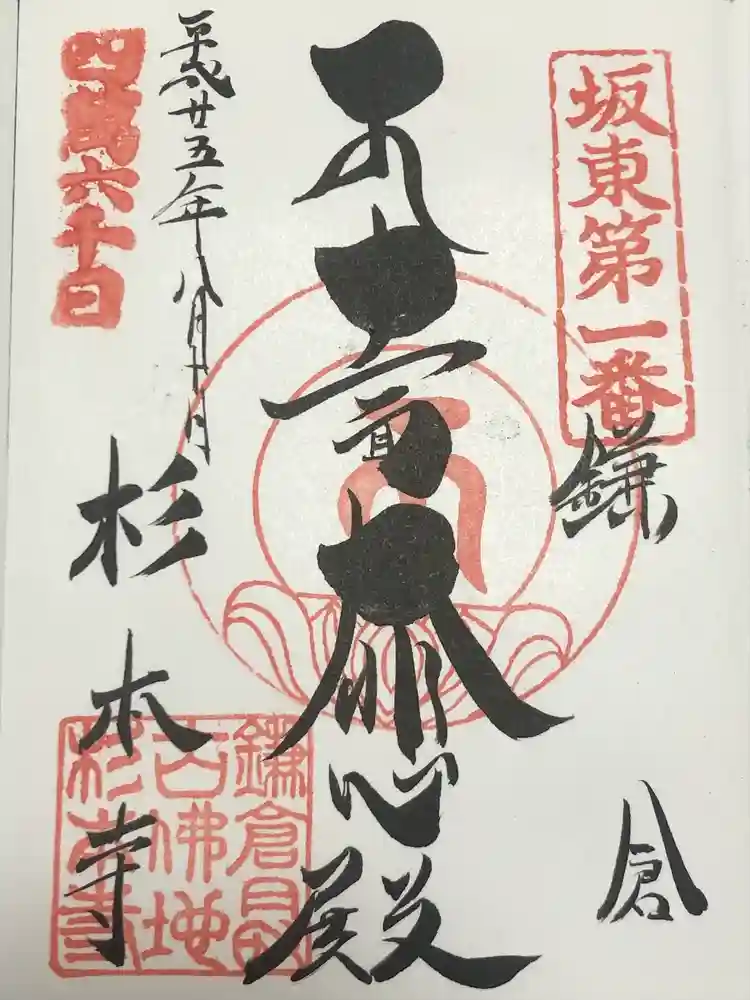 坂東第一番
鎌倉
十一面大悲殿
平成廿五年八月十日
四萬六千日
杉本寺
鎌倉最
古佛地
杉本寺